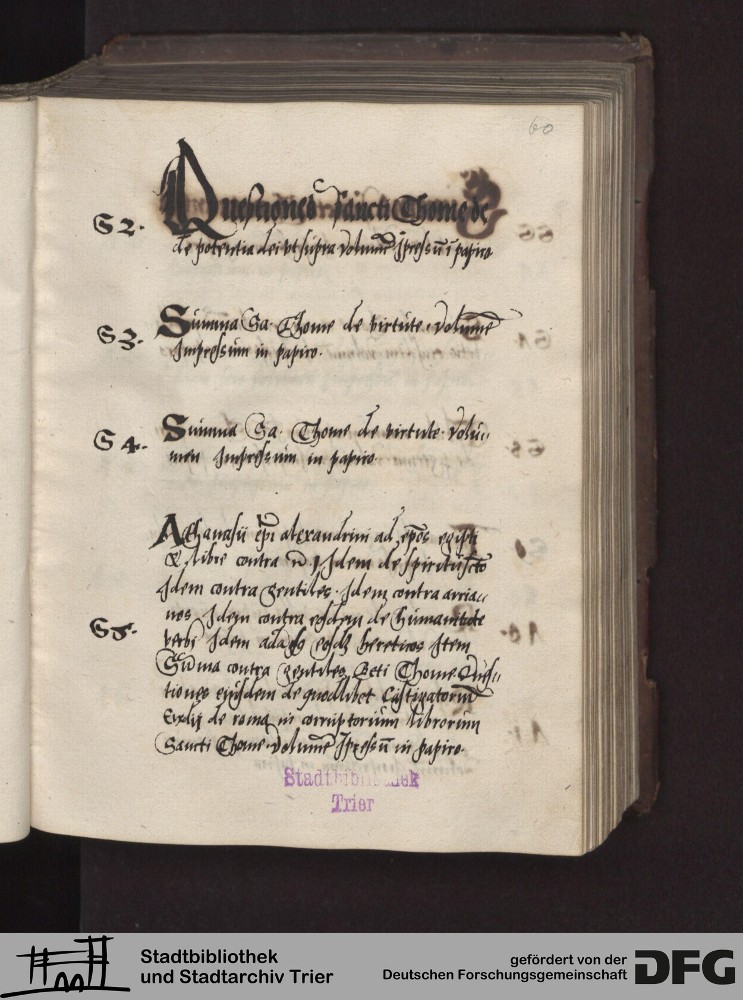 60
S 2.
Questiones sancti Thome de
de potentia dei vt supra volumē Jpressū ī papiro
S 3.
Summa Sa. Thome de virtute. volumē
Impressum in papiro.
S 4.
Summa Sa. Thome de virtute. volu-
men Impressum in papiro
S 5.
Athanasii epī alexandrini ad epōs egipti
libre contra Idem de spiritu
Idem contra gentiles. Idem contra arria-
nos Idem contra eosdem de humanitate
verbi Idem eosdē hereticos Item
Sūma contra gentiles Beti Thome Ques-
tiones eiusdem de quodlibet Castigatoriū
de roma in corruptorium librorum
Sancti Thome. volumē Jpressū in papiro.
Stadtbibliothek
Trier
Stadtbibliothek
und Stadtarchiv Trier
gefördert von der
Deutschen Forschungsgemeinschaft
DFG